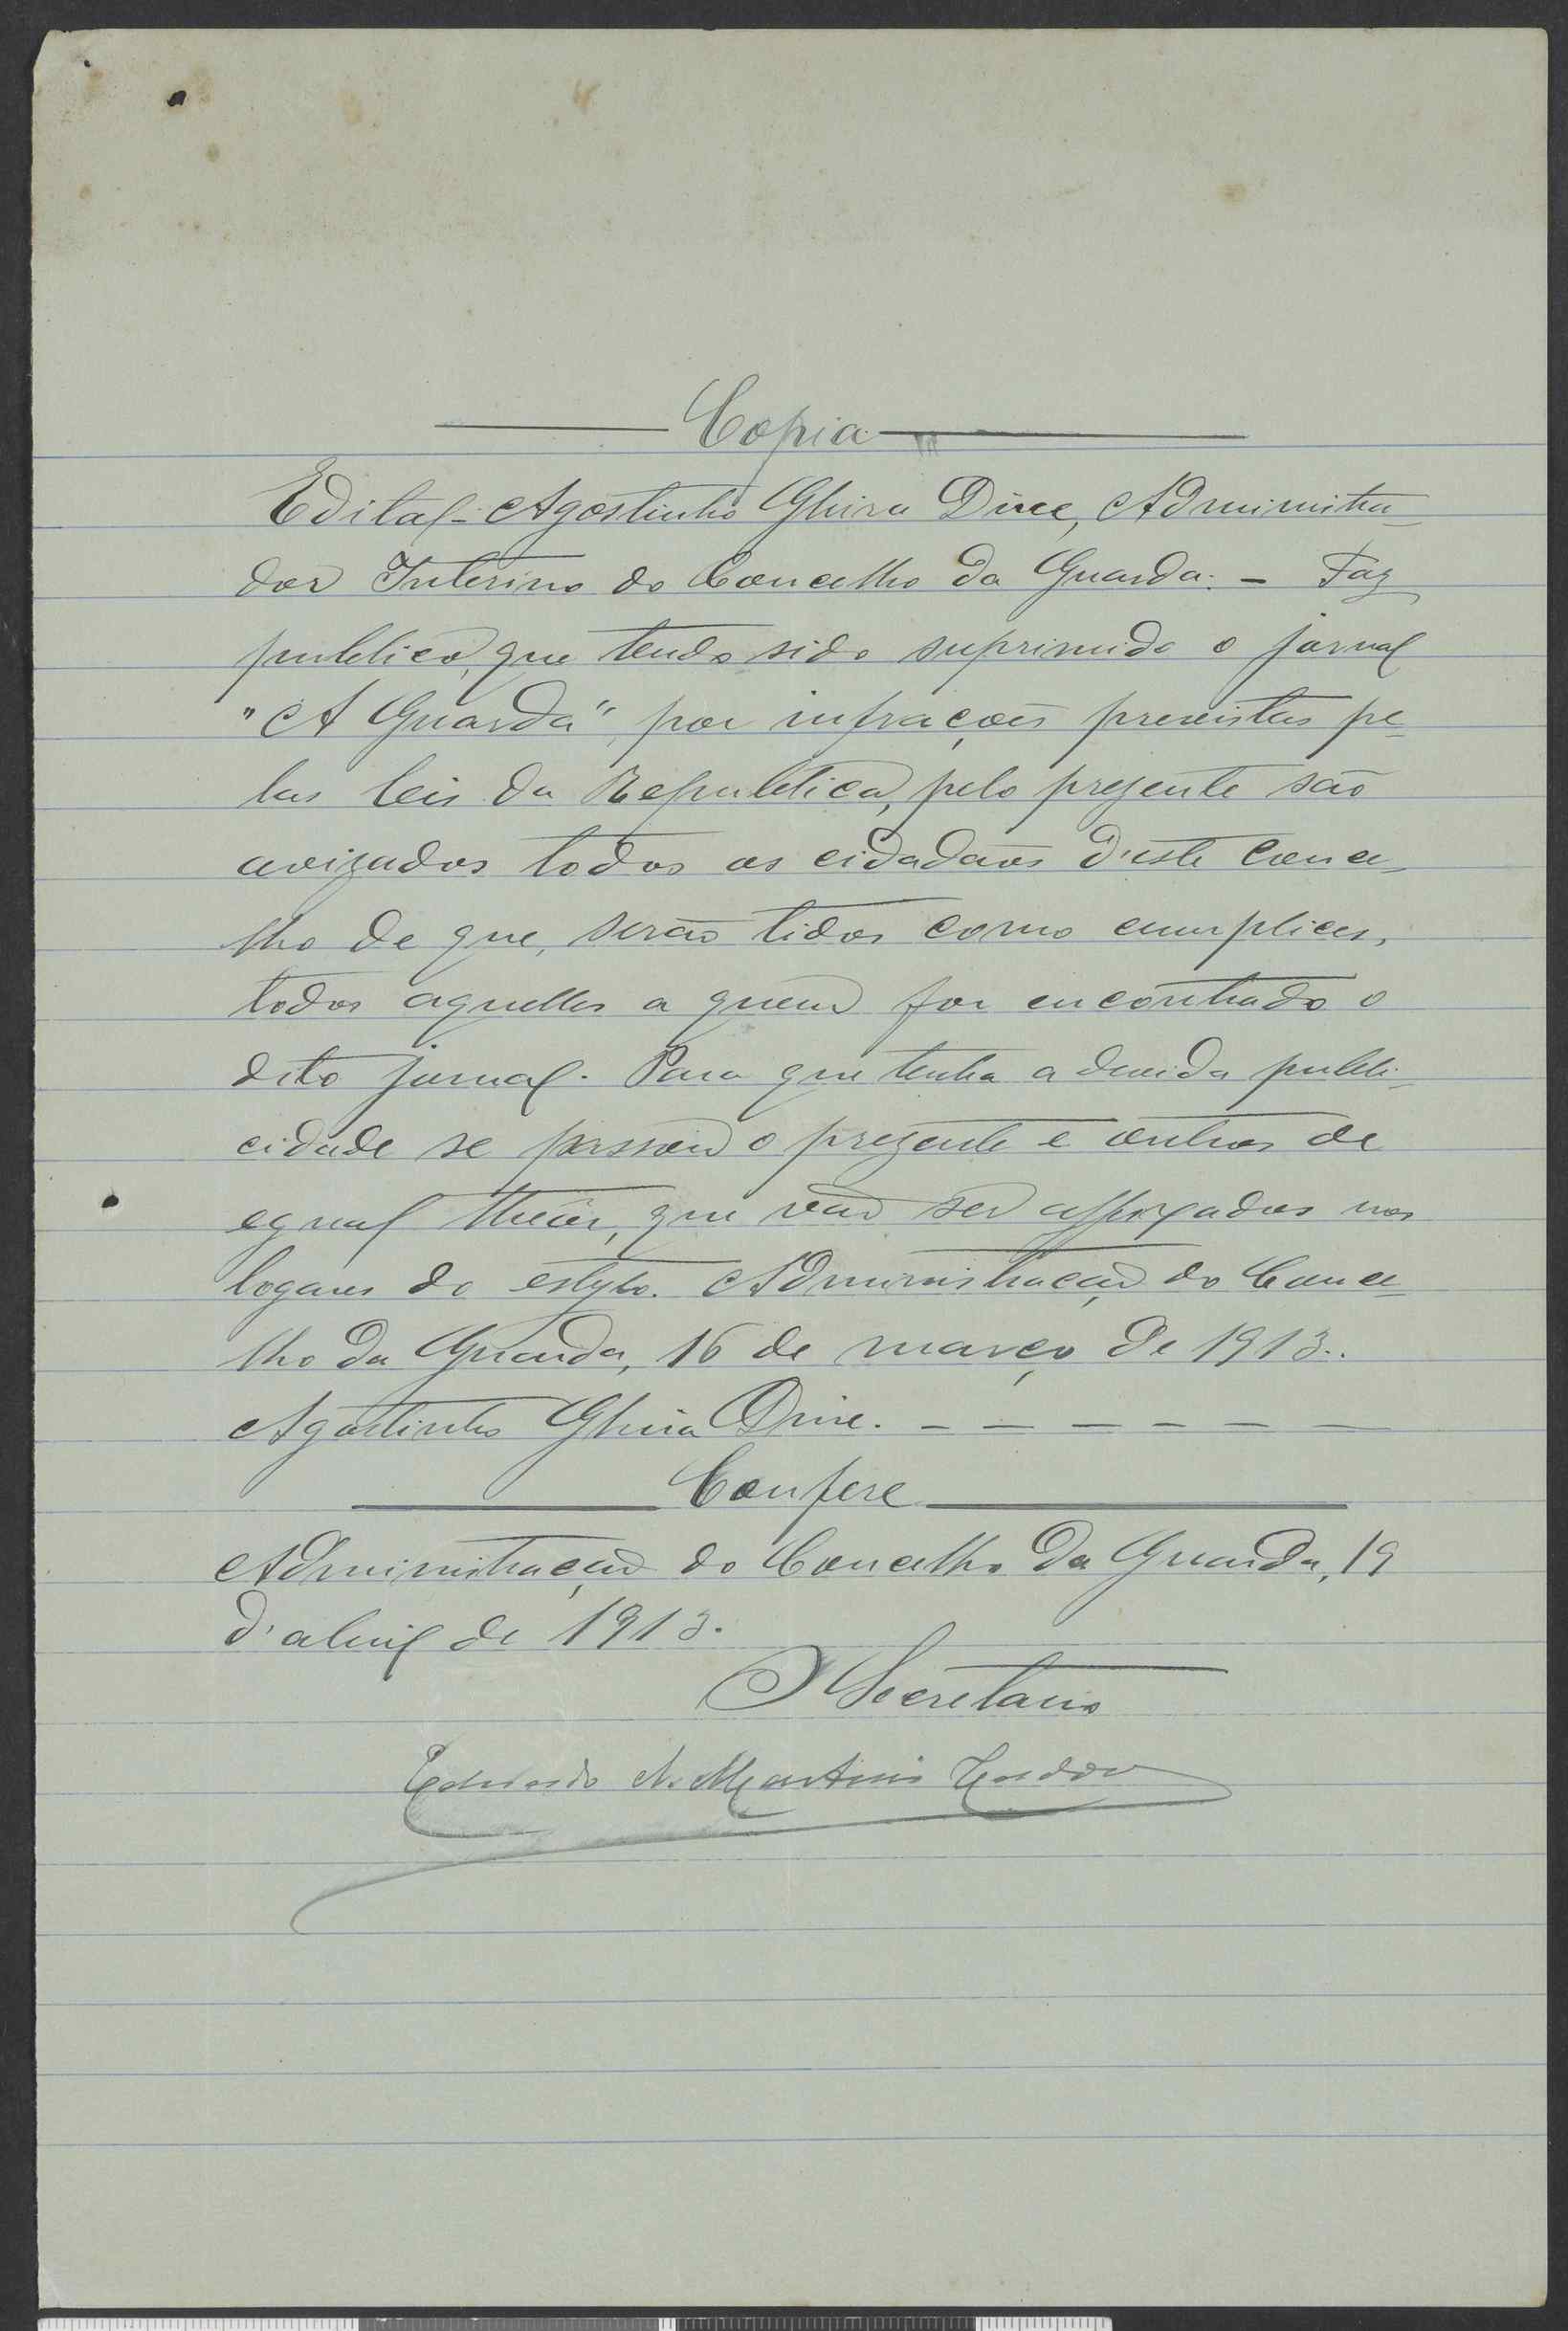 Copia
Edital - Agostinho Ghira Dine, Administra-
dor Interino do Concelho da Guarda. - Faz
publico, que tendo sido suprimido o jornal
"A Guarda", por infrações previstas pe-
las leis da Republica, pelo prezente são
avizados todos os cidadãos d'este conce-
lho de que, serão tidos como cumplices,
todos aquelles a quem for encontrado o
dito jornal. Para que tenha a devida publi-
cidade se passou o prezente e outros de
egual theor, que vão ser affixados nos
logares do estylo. Administração do Conce-
lho da Guarda, 16 de março de 1913..
Agostinho Ghira Dine. - - - - - - -
Confere
Administração do Concelho da Guarda, 19
d'abril de 1913.
O Secretario
Eduardo A. Martins